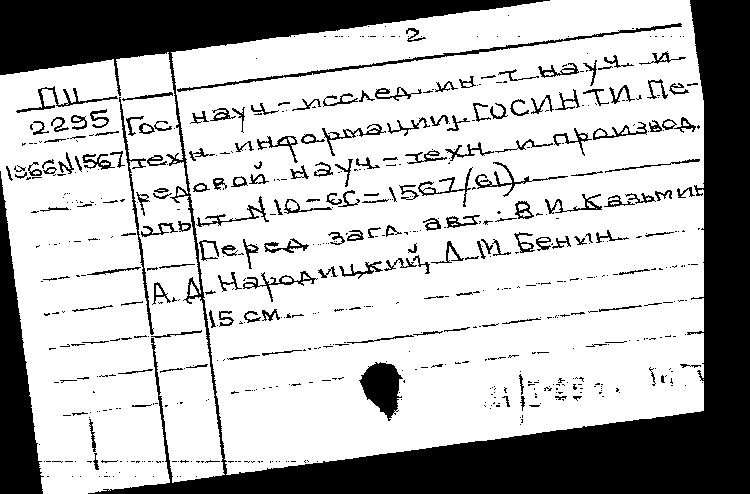 2
ПII
2295 Гос. науч-исслед. ин-т науч и
1966N1567 техн информации. ГОСИНТИ. Пе-
редовой науч-техн и производ.
опыт N10-66-1567/61).
Перед загл авт.: В.И. Казьмин
А. Д. Народицкий, Л М Бенин
15 см.